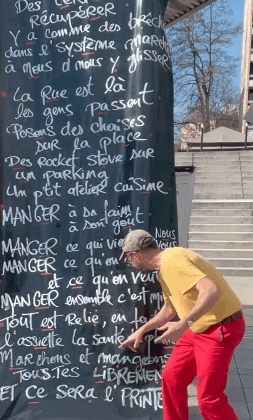 Des
RÉCUPÉRER
Y a comme des brèch
dans l'système march
à nous d'nous y glisser
La Rue est là et
les gens passent
Posons des chaises
sur la place
Des Rocket Stove sur
un parking
Un p'tit atelier cuisine
MANGER à sa faim
à son goût
MANGER ce qui vie Nous
MANGER ce qu'on Vous
et ce qu'on veut
MANGER ensemble c'est mi
TOUT EST Relié, en to
l'assiette la santé
Marchons et mangeons
TOUS.TES LIBREMEN
ET Ce SERA l'PRINTE